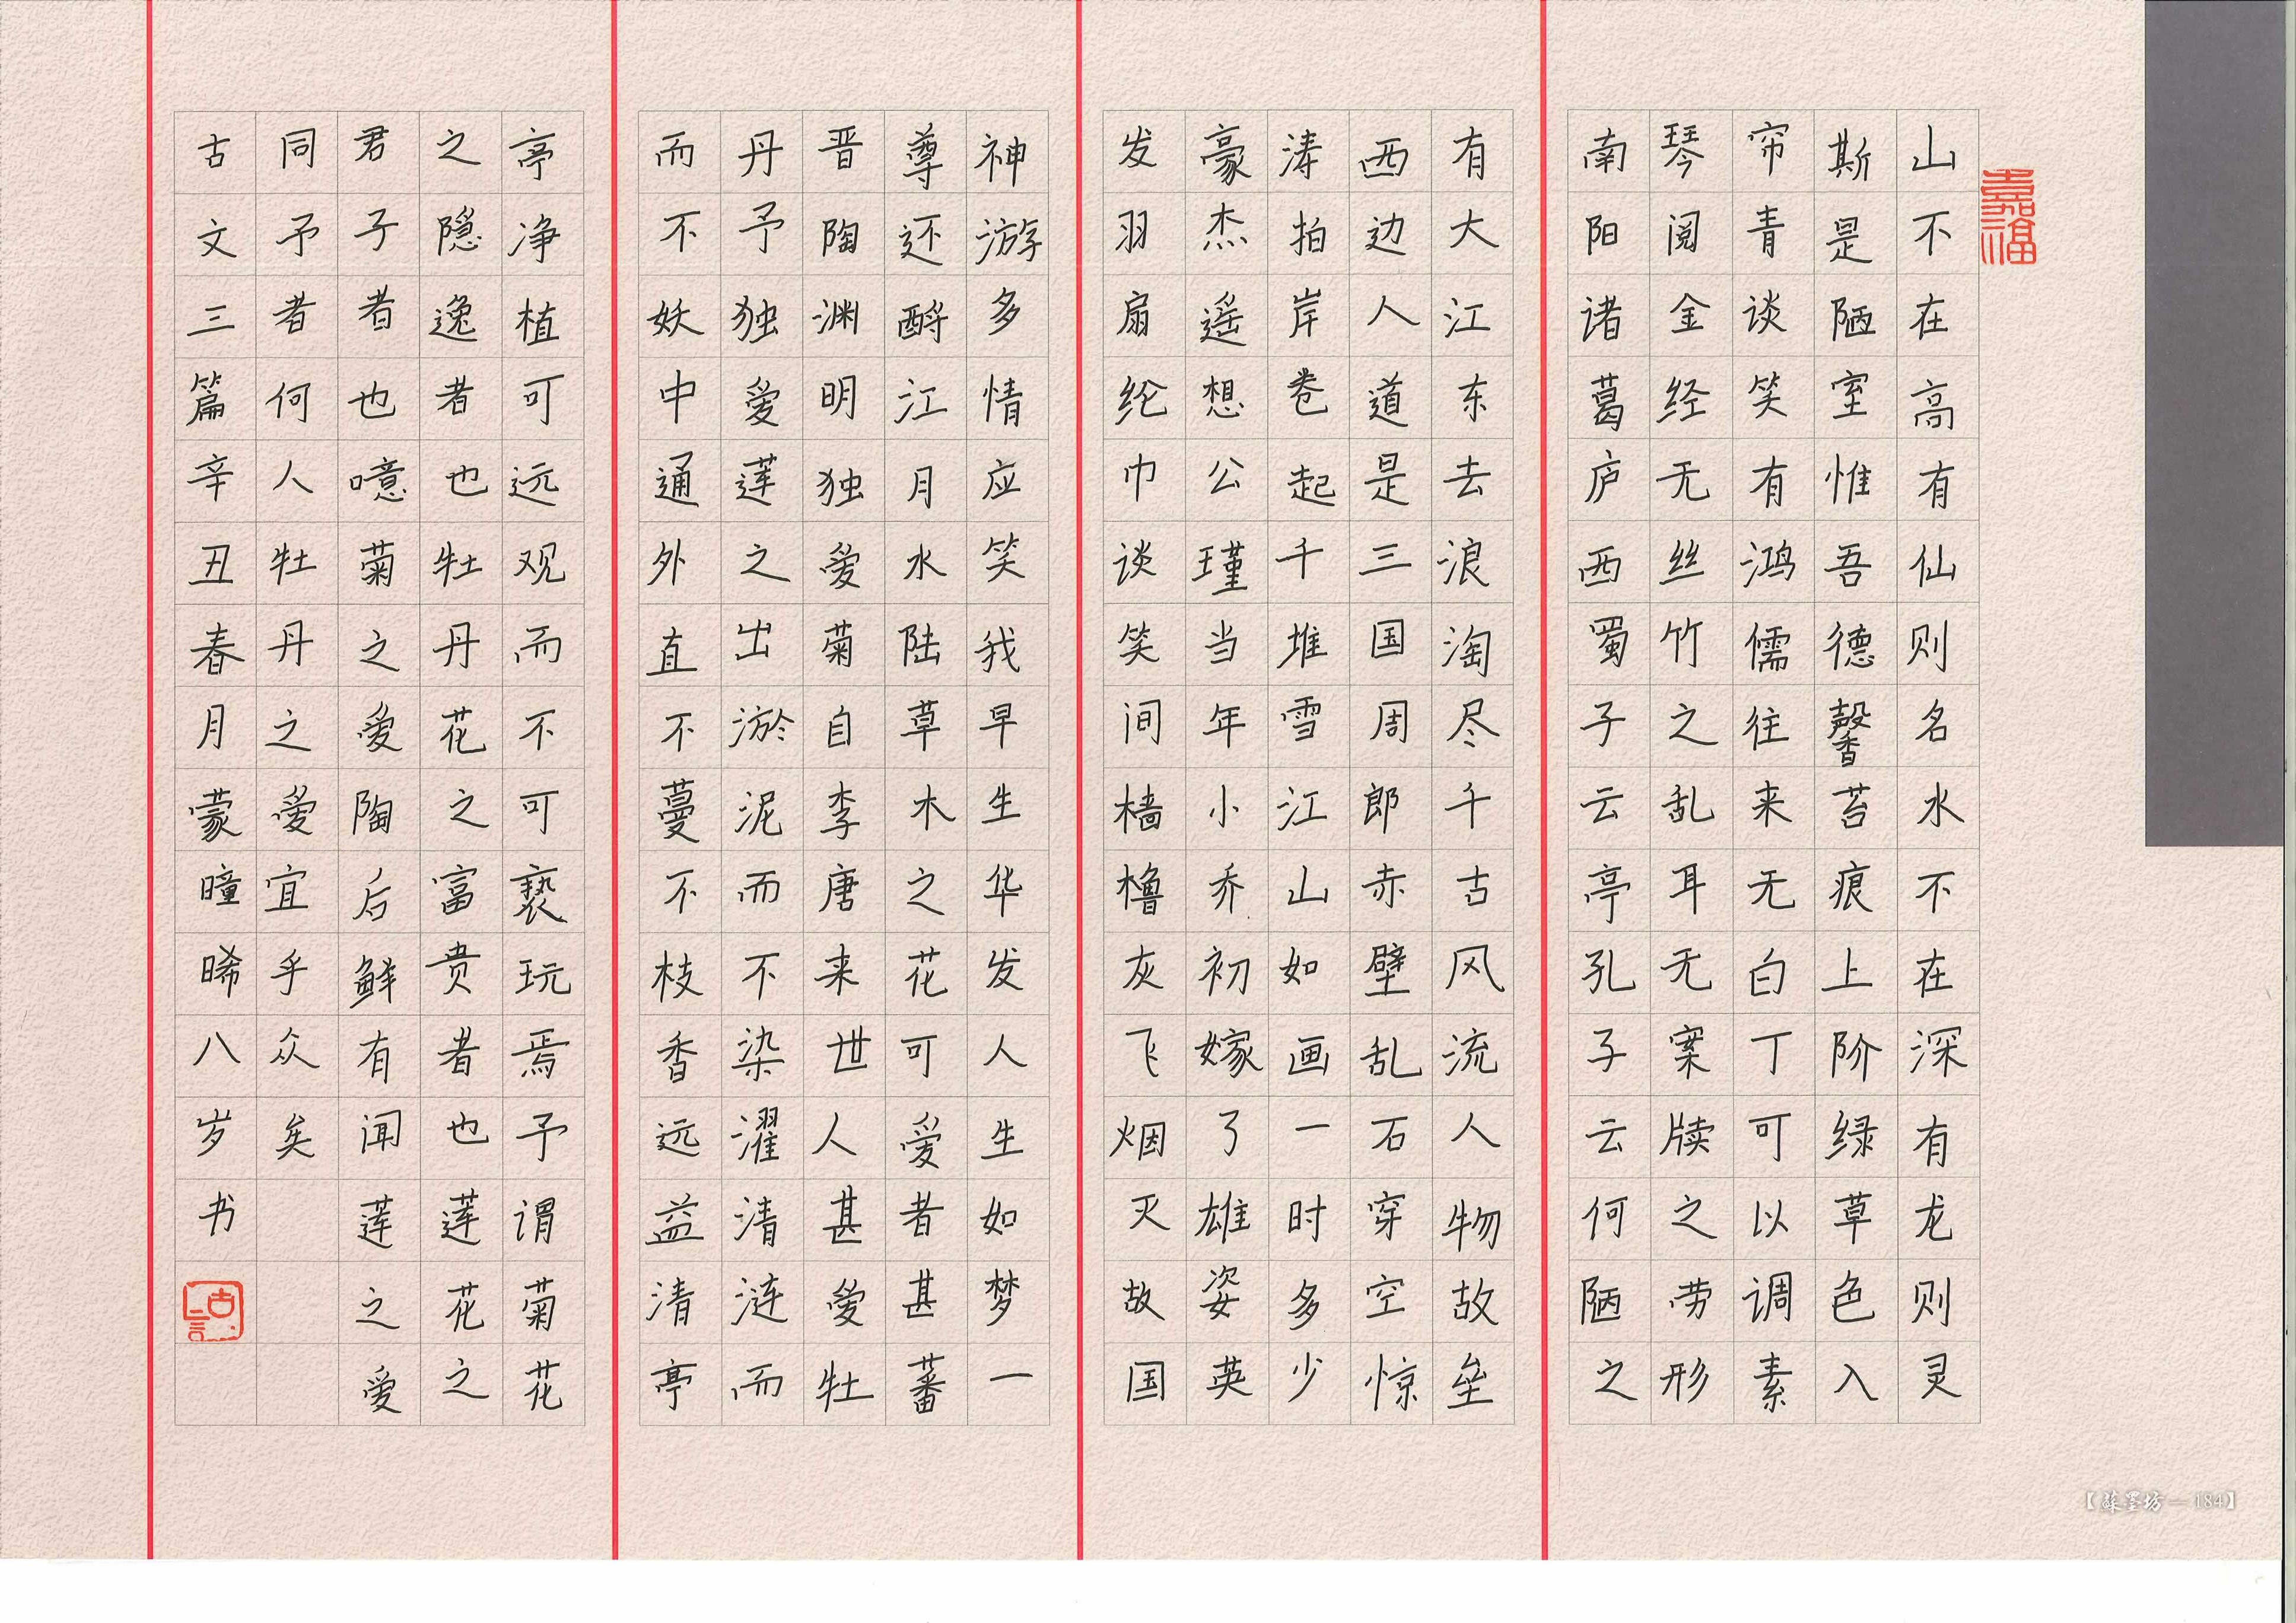 嘉福
山不在高有仙则名水不在深有龙则灵
斯是陋室惟吾德馨苔痕上阶绿草色入
帘青谈笑有鸿儒往来无白丁可以调素
琴阅金经无丝竹之乱耳无案牍之劳形
南阳诸葛庐西蜀子云亭孔子云何陋之
有大江东去浪淘尽千古风流人物故垒
西边人道是三国周郎赤壁乱石穿空惊
涛拍岸卷起千堆雪江山如画一时多少
豪杰遥想公瑾当年小乔初嫁了雄姿英
发羽扇纶巾谈笑间樯橹灰飞烟灭故国
神游多情应笑我早生华发人生如梦一
尊还酹江月水陆草木之花可爱者甚蕃
晋陶渊明独爱菊自李唐来世人甚爱牡
丹予独爱莲之出淤泥而不染濯清涟而
而不妖中通外直不蔓不枝香远益清亭
亭净植可远观而不可亵玩焉予谓菊花
之隐逸者也牡丹花之富贵者也莲花之
君子者也噫菊之爱陶后鲜有闻莲之爱
同予者何人牡丹之爱宜乎众矣
古文三篇辛丑春月蒙曈晞八岁书
【蘇墨坊—184】